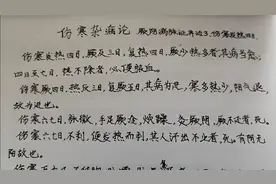 伤寒杂病论 厥阴病脉证并治3、伤寒发热四日
伤寒发热四日,厥反三日,复热四日,厥少热多者,其病当愈;
四日至七日,热不除者,必便脓血。
伤寒厥四日,热反三日,复厥五日,其病为进,寒多热少,阳气退,
故为进也。
伤寒六七日,脉微,手足厥冷,烦躁,灸厥阴,厥不还者,死。
伤寒六七日,不利,便发热而利,其人汗出不止者,死,有阴无
阳故也。